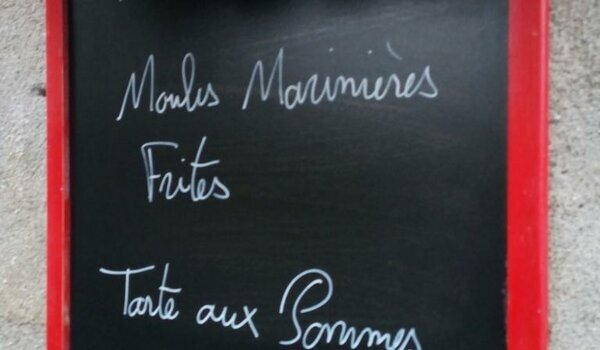 Moules Marinières
Frites
Tarte aux Pommes